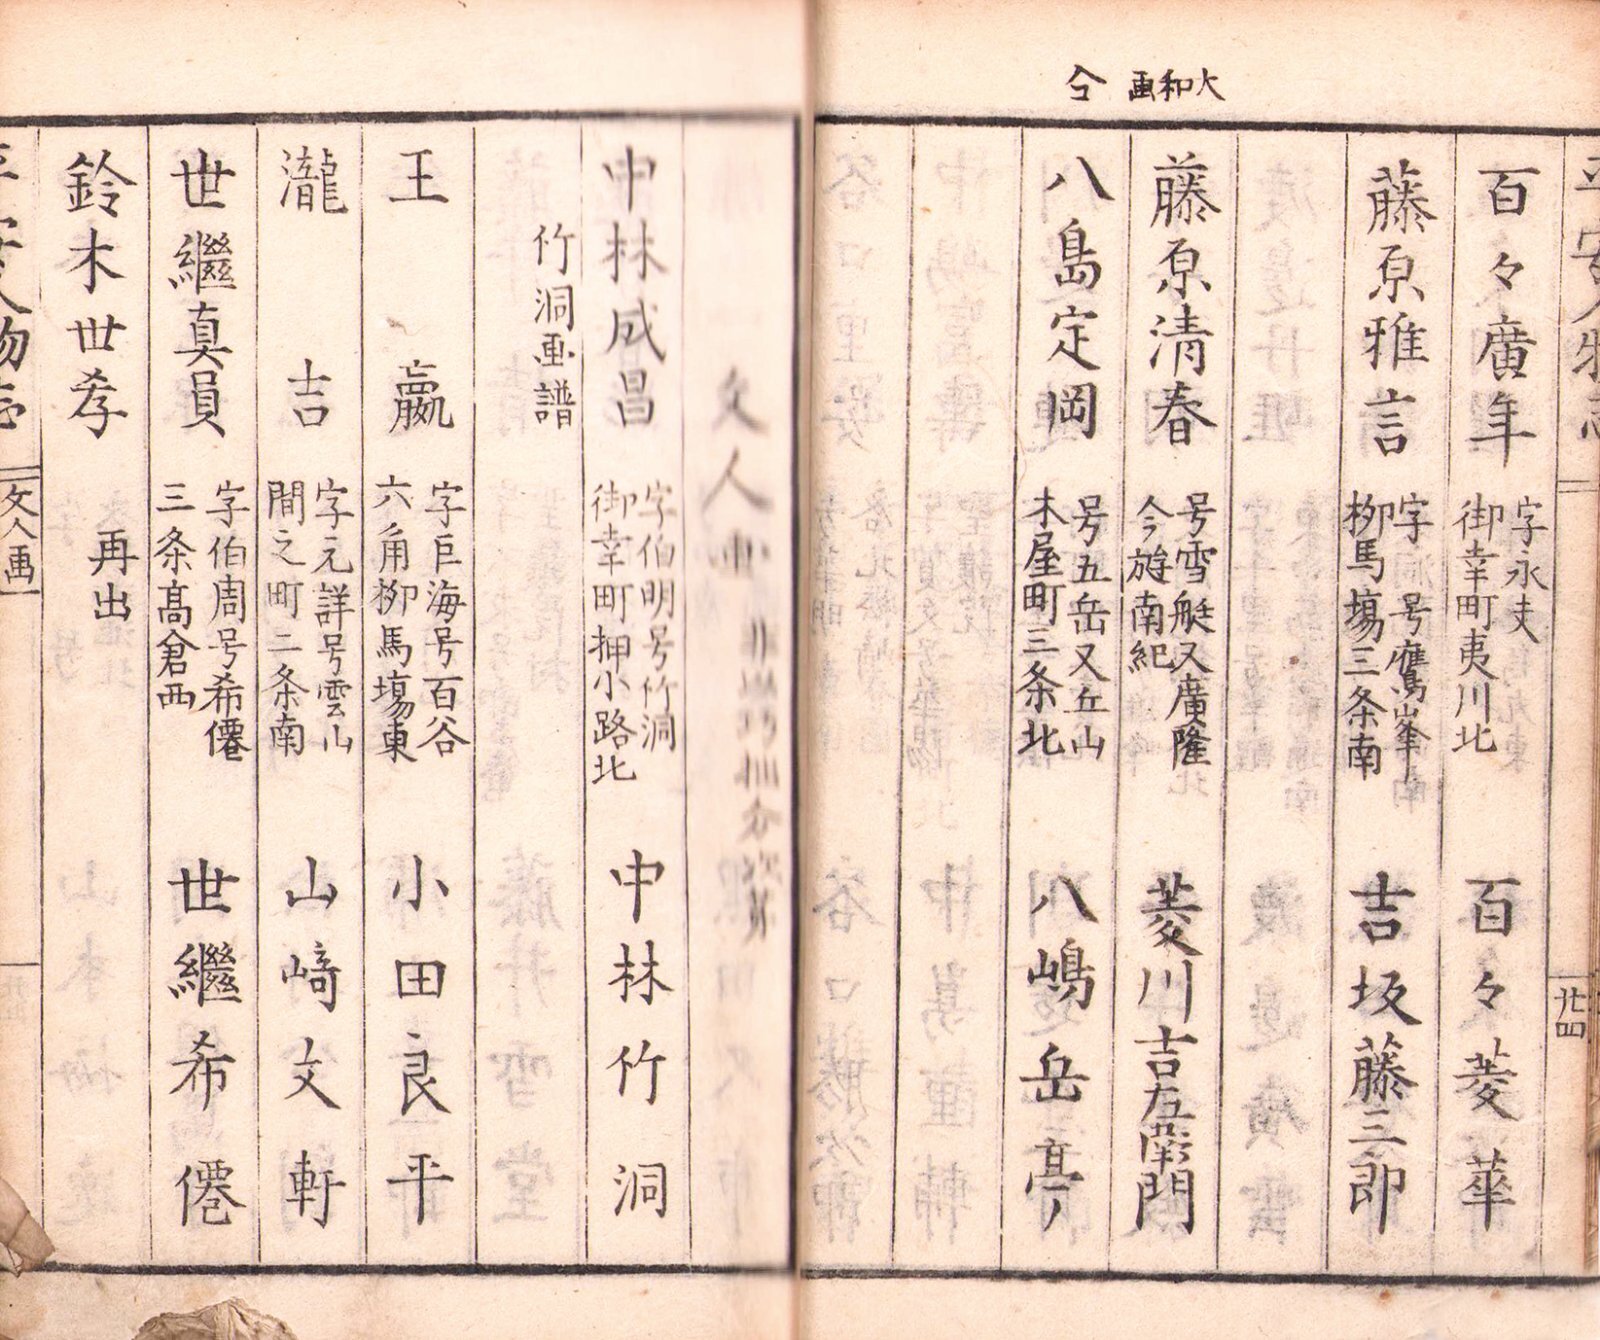 大和画 今
百々廣年 字永夫 御幸町夷川北 百々菱華
藤原雅言 字洞号鷹峯 柳馬塲三条南 吉坂藤三郎
藤原清春 号雪艇又廣隆 今旌南紀 菱川吉左衛門
八島定岡 号五岳又丘山 木屋町三条北 八嶋岳亭
廿四
文人画
中林成昌 字伯明号竹洞 御幸町押小路北 中林竹洞
竹洞画譜
王嬴 字巨海号百谷 六角柳馬塲東 小田良平
瀧吉 字元詳号雲山 間之町二条南 山﨑文軒
世繼真員 字伯周号希僊 三条髙倉西 世繼希僊
鈴木世孝 再出
文人画